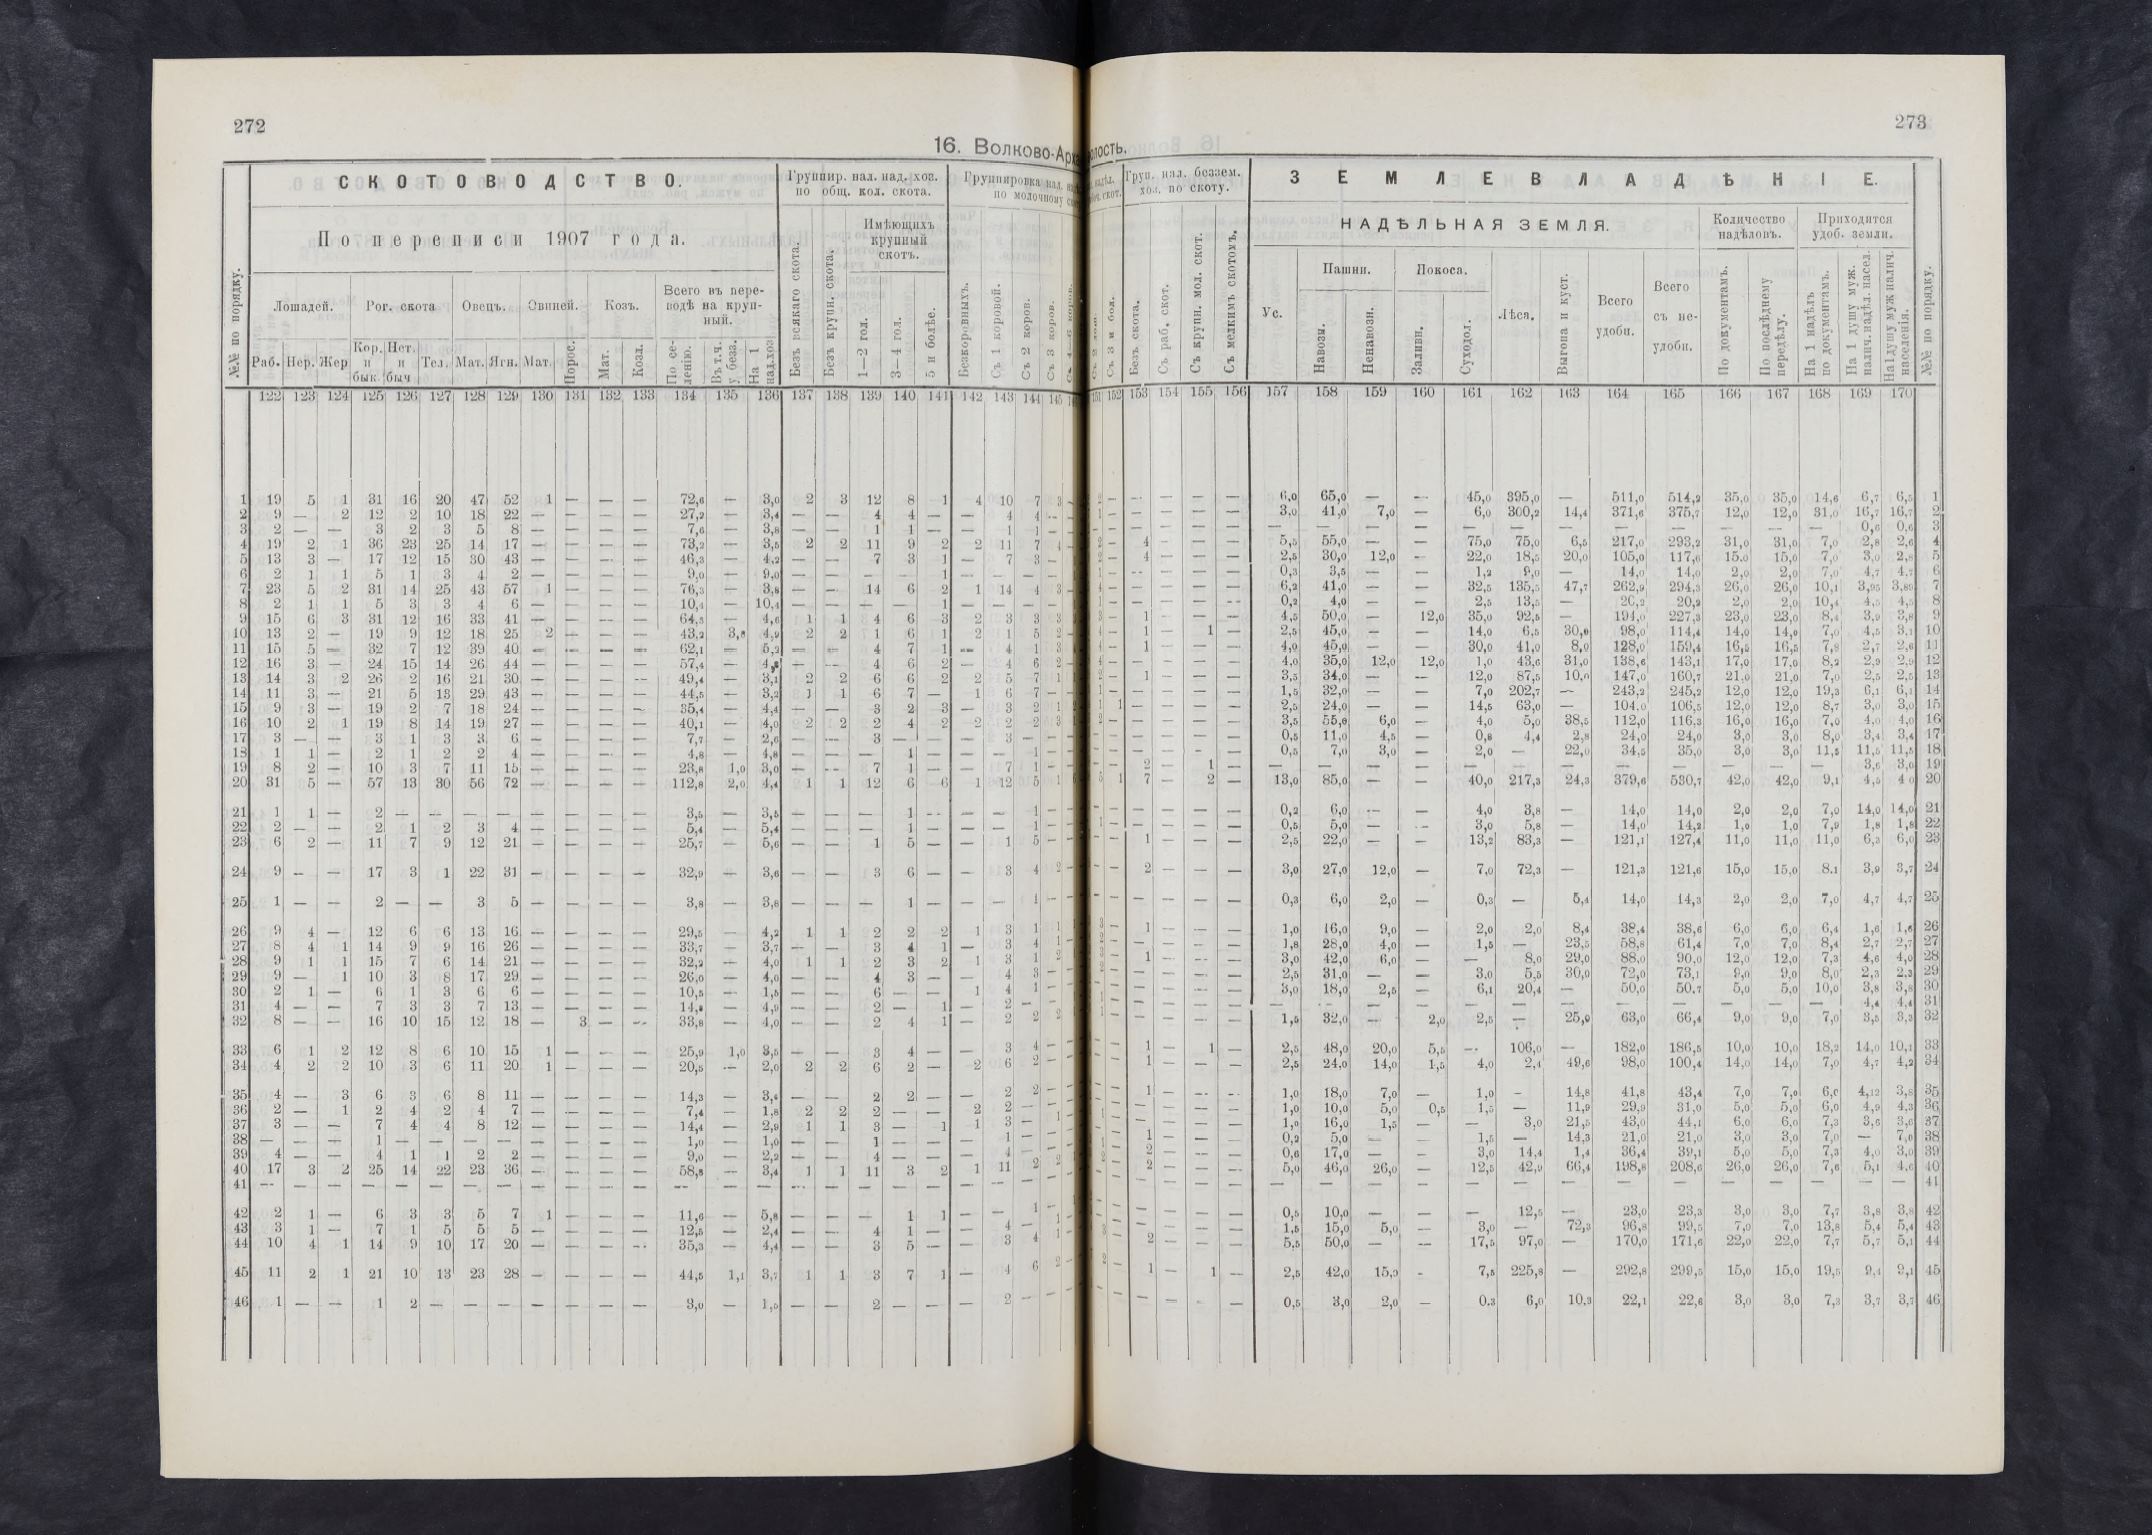 272
273
16. Волково-Арха
олость.
СКОТОВОДСТВО.
По переписи 1907 года.
Группир. нал. над. хоз. по общ. кол. скота.
Группировка нал.
по молочному
Груп. нал. безземл.
хоз. по скоту.
ЗЕМЛЕВЛАДѢНІЕ.
НАДѢЛЬНАЯ ЗЕМЛЯ.
Количество надѣловъ.
Приходится удоб. земли.
№№ по порядку.
Лошадей.
Рог. скота
Овецъ.
Свиней.
Козъ.
Всего въ переводѣ на крупный.
Имѣющихъ крупный скотъ.
Пашни.
Покоса.
Раб. Нер. Жер Кор. и бык. Нет. и быч Тел. Мат. Ягн. Мат. Порос. Мат. Козл. По селенію. Въ т.ч. у безз. На 1 над.хоз.
Безъ всякаго скота. Безъ крупн. скота. 1—2 гол. 3—4 гол. 5 и болѣе. Безкоровныхъ. Съ 1 коровой. Съ 2 коров. Съ 3 коров.
Съ 3 и бол. Безъ скота. Съ раб. скот. Съ крупн. мол. скот. Съ мелкимъ скотомъ.
Ус. Навозн. Ненавозн. Заливн. Суходол. Лѣса. Выгона и куст. Всего удобн. Всего съ неудобн. По документамъ. По послѣднему передѣлу. На 1 надѣлъ по документамъ. На 1 душу муж. налич. надѣл. насел. На 1 душу муж налич. населенія. №№ по порядку.
122 123 124 125 126 127 128 129 130 131 132 133 134 135 136 137 138 139 140 141 142 143 144 145
151 152 153 154 155 156 157 158 159 160 161 162 163 164 165 166 167 168 169 170
1 19 5 1 31 16 20 47 52 1 — — — 72,6 — 3,0 2 3 12 8 1 4 10 7 3
2 9 — 2 12 2 10 18 22 — — — — 27,2 — 3,4 — — 4 4 — — 4 4
3 2 — — 3 2 3 5 8 — — — — 7,6 — 3,8 — — 1 1 — — 1 1
4 19 2 1 36 23 25 14 17 — — — — 73,2 — 3,5 2 2 11 9 2 2 11 7
5 13 3 — 17 12 15 30 43 — — — — 46,3 — 4,2 — — 7 3 1 — 7 3
6 2 1 1 5 1 3 4 2 — — — — 9,0 — 9,0 — — — — 1
7 23 5 2 31 14 25 43 57 1 — — — 76,3 — 3,8 — — 14 6 2 1 14 4 3
8 2 1 1 5 3 3 4 6 — — — — 10,4 — 10,4 — — — — 1
9 15 6 3 31 12 16 33 41 — — — — 64,5 — 4,6 1 1 4 6 3 2 3 3 3
10 13 2 — 19 9 12 18 25 2 — — — 43,2 3,8 4,9 2 2 1 6 1 2 1 5 2
11 15 5 — 32 7 12 39 40 — — — — 62,1 — 5,2 — — 4 7 1 — 4 1 3
12 16 3 — 24 15 14 26 44 — — — — 57,4 — — — 4 6 2 — 4 6 2
13 14 3 2 26 2 16 21 30 — — — — 49,4 — 3,1 2 2 6 6 2 2 5 7 1
14 11 3 — 21 5 13 29 43 — — — — 44,5 — 3,2 1 1 6 7 — 1 6 7
15 9 3 — 19 2 7 18 24 — — — — 35,4 — 4,4 — — 3 2 3 — 3 2 1
16 10 2 1 19 8 14 19 27 — — — — 40,1 — 4,0 2 2 2 4 2 2 2 2 3
17 3 — — 3 1 3 3 6 — — — — 7,7 — 2,6 — — 3 — — — 3
18 1 1 — 2 1 2 2 4 — — — — 4,8 — 4,8 — — — 1 — — — 1
19 8 2 — 10 3 7 11 15 — — — — 23,8 1,0 3,0 — — 7 1 — — 7 1
20 31 5 — 57 13 30 56 72 — — — — 112,8 2,0 4,4 1 1 12 6 6 1 12 5 1
21 1 1 — 2 — — — — — — — — 3,5 — 3,5 — — — 1 — — — 1
22 2 — — 2 1 2 3 4 — — — — 5,4 — 5,4 — — — 1 — — — 1
23 6 2 — 11 7 9 12 21 — — — — 25,7 — 5,6 — — 1 5 — — 1 5
24 9 — — 17 3 1 22 31 — — — — 32,9 — 3,6 — — 3 6 — — 3 4 2
25 1 — — 2 — — 3 5 — — — — 3,8 — 3,8 — — — 1 — — — 1
26 9 4 — 12 6 6 13 16 — — — — 29,5 — 4,2 1 1 2 2 2 1 3 1
27 8 4 1 14 9 9 16 26 — — — — 33,7 — 3,7 — — 3 4 1 — 3 4 1
28 9 1 1 15 7 6 14 21 — — — — 32,2 — 4,0 1 1 2 3 2 1 3 1
29 9 — 1 10 3 8 17 29 — — — — 26,0 — 4,0 — — 4 3 — — 4 3
30 2 1 — 6 1 3 6 6 — — — — 10,5 — 1,5 — — 6 — — 1 4 1
31 4 — — 7 3 3 7 13 — — — — 14,8 — 4,9 — — 2 — 1 — 2
32 8 — — 16 10 15 12 18 — 3 — — 33,8 — 4,0 — — 2 4 1 — 2 2 2
33 6 1 2 12 8 6 10 15 1 — — — 25,9 1,0 3,5 — — 3 4 — — 3 4
34 4 2 2 10 3 6 11 20 1 — — — 20,5 — 2,0 2 2 6 2 — 2 6 2
35 4 — 3 6 3 6 8 11 — — — — 14,3 — 3,4 — — 2 2 — — 2 2
36 2 — 1 2 4 2 4 7 — — — — 7,4 — 1,8 2 2 2 — — 2 2
37 3 — — 7 4 4 8 12 — — — — 14,4 — 2,9 1 1 3 — 1 1 3
38 — — — 1 — — — — — — — — 1,0 — 1,0 — — 1 — — — 1
39 4 — — 4 1 1 2 2 — — — — 9,0 — 2,2 — — 4 — — — 4
40 17 3 2 25 14 22 23 36 — — — — 58,8 — 3,4 1 1 11 3 2 1 11 2 2
41 — — — — — — — — — — — — — — — — — — — —
42 2 1 — 6 3 3 5 7 1 — — — 11,6 — 5,8 — — — 1 1 — — 1
43 3 1 — 7 1 5 5 5 — — — — 12,5 — 2,4 — — 4 1 — — 4
44 10 4 1 14 9 10 17 20 — — — — 35,3 — 4,4 — — 3 5 — — 3 4 1
45 11 2 1 21 10 13 23 28 — — — — 44,5 1,1 3,7 1 1 3 7 1 — 4 6 2
46 1 — — 1 2 — — — — — — — 3,0 — 1,5 — — 2 — — — 2
6,0 65,0 — — 45,0 395,0 — 511,0 514,2 35,0 35,0 14,6 6,7 6,5 1
3,0 41,0 7,0 — 6,0 300,2 14,4 371,6 375,7 12,0 12,0 31,0 16,7 16,7 2
— — — — — — — — — — — — 0,6 0,6 3
4 — — — 5,5 55,0 — — 75,0 75,0 6,5 217,0 293,2 31,0 31,0 7,0 2,8 2,6 4
4 — — — 2,5 30,0 12,0 — 22,0 18,5 20,0 105,0 117,6 15,0 15,0 7,0 3,0 2,8 5
0,3 3,5 — — 1,2 9,0 — 14,0 14,0 2,0 2,0 7,0 4,7 4,7 6
6,2 41,0 — — 32,5 135,5 47,7 262,9 294,3 26,0 26,0 10,1 3,95 3,89 7
0,2 4,0 — — 2,5 13,5 — 20,2 20,2 2,0 2,0 10,4 4,5 4,5 8
1 — — — 4,5 50,0 — 12,0 35,0 92,5 — 194,0 227,3 23,0 23,0 8,4 3,9 3,8 9
1 — 1 — 2,5 45,0 — — 14,0 6,5 30,0 98,0 114,4 14,0 14,0 7,0 4,5 3,1 10
1 — — — 4,0 45,0 — — 30,0 41,0 8,0 128,0 159,4 16,5 16,5 7,8 2,7 2,6 11
4,0 35,0 12,0 12,0 1,0 43,6 31,0 138,6 143,1 17,0 17,0 8,2 2,9 2,9 12
1 — — — 3,5 34,0 — — 12,0 87,5 10,0 147,0 160,7 21,0 21,0 7,0 2,5 2,5 13
1,5 32,0 — — 7,0 202,7 — 243,2 245,2 12,0 12,0 19,3 6,1 6,1 14
2,5 24,0 — — 14,5 63,0 — 104,0 106,5 12,0 12,0 8,7 3,0 3,0 15
3,5 55,0 6,0 — 4,0 5,0 38,5 112,0 116,3 16,0 16,0 7,0 4,0 4,0 16
0,5 11,0 4,5 — 0,8 4,4 2,8 24,0 24,0 3,0 3,0 8,0 3,4 3,4 17
0,5 7,0 3,0 — 2,0 — 22,0 34,5 35,0 3,0 3,0 11,5 11,5 11,5 18
2 — 1 — — — — — — — — — — — — — 3,6 3,0 19
7 — 2 — 13,0 85,0 — — 40,0 217,3 24,3 379,6 530,7 42,0 42,0 9,1 4,5 4,0 20
0,2 6,0 — — 4,0 3,8 — 14,0 14,0 2,0 2,0 7,0 14,0 14,0 21
0,5 5,0 — — 3,0 5,8 — 14,0 14,2 1,0 1,0 7,9 1,8 1,8 22
1 — — — 2,5 22,0 — — 13,2 83,3 — 121,1 127,4 11,0 11,0 11,0 6,3 6,0 23
2 — — — 3,0 27,0 12,0 — 7,0 72,3 — 121,3 121,6 15,0 15,0 8,1 3,9 3,7 24
0,3 6,0 2,0 — 0,3 — 5,4 14,0 14,3 2,0 2,0 7,0 4,7 4,7 25
1 — — — 1,0 16,0 9,0 — 2,0 2,0 8,4 38,4 38,6 6,0 6,0 6,4 1,6 1,6 26
1,8 28,0 4,0 — 1,5 — 23,5 58,8 61,4 7,0 7,0 8,4 2,7 2,7 27
1 — — — 3,0 42,0 6,0 — — 8,0 29,0 88,0 90,0 12,0 12,0 7,3 4,6 4,0 28
2,5 31,0 — — 3,0 5,5 30,0 72,0 73,1 9,0 9,0 8,0 2,3 2,3 29
3,0 18,0 2,5 — 6,1 20,4 — 50,0 50,7 5,0 5,0 10,0 3,8 3,8 30
— — — — — — — — — — — — 4,4 4,4 31
1,5 32,0 — 2,0 2,5 — 25,0 63,0 66,4 9,0 9,0 7,0 3,5 3,3 32
1 — 1 — 2,5 48,0 20,0 5,5 — 106,0 — 182,0 186,5 10,0 10,0 18,2 14,0 10,1 33
1 — — — 2,5 24,0 14,0 1,5 4,0 2,4 49,6 98,0 100,4 14,0 14,0 7,0 4,7 4,2 34
1 — — — 1,0 18,0 7,0 — 1,0 — 14,8 41,8 43,4 7,0 7,0 6,0 4,12 3,8 35
1,0 10,0 5,0 0,5 1,5 — 11,9 29,9 31,0 5,0 5,0 6,0 4,9 4,3 36
1,0 16,0 1,5 — — 3,0 21,5 43,0 44,1 6,0 6,0 7,3 3,6 3,6 37
1 — — — 0,2 5,0 — — 1,5 — 14,3 21,0 21,0 3,0 3,0 7,0 — 7,0 38
2 — — — 0,6 17,0 — — 3,0 14,4 1,4 36,4 39,1 5,0 5,0 7,3 4,0 3,0 39
2 — — — 5,0 46,0 26,0 — 12,5 42,9 66,4 198,8 208,6 26,0 26,0 7,6 5,1 4,6 40
— — — — — — — — — — — — — — 41
0,5 10,0 — — — 12,5 — 23,0 23,3 3,0 3,0 7,7 3,8 3,8 42
1,5 15,0 5,0 — 3,0 — 72,3 96,8 99,5 7,0 7,0 13,8 5,4 5,4 43
2 — — — 5,5 50,0 — — 17,5 97,0 — 170,0 171,6 22,0 22,0 7,7 5,7 5,1 44
1 — 1 — 2,5 42,0 15,0 - 7,5 225,8 — 292,8 299,5 15,0 15,0 19,5 9,4 9,1 45
0,5 3,0 2,0 — 0.3 6,0 10,3 22,1 22,6 3,0 3,0 7,3 3,7 3,7 46